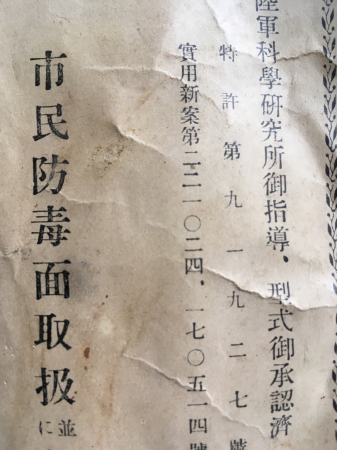 陸軍科學研究所御指導、型式御承認濟
特許第九一九二七號
實用新案第二二一〇二四、一七〇五一四號
市民防毒面取扱
並に